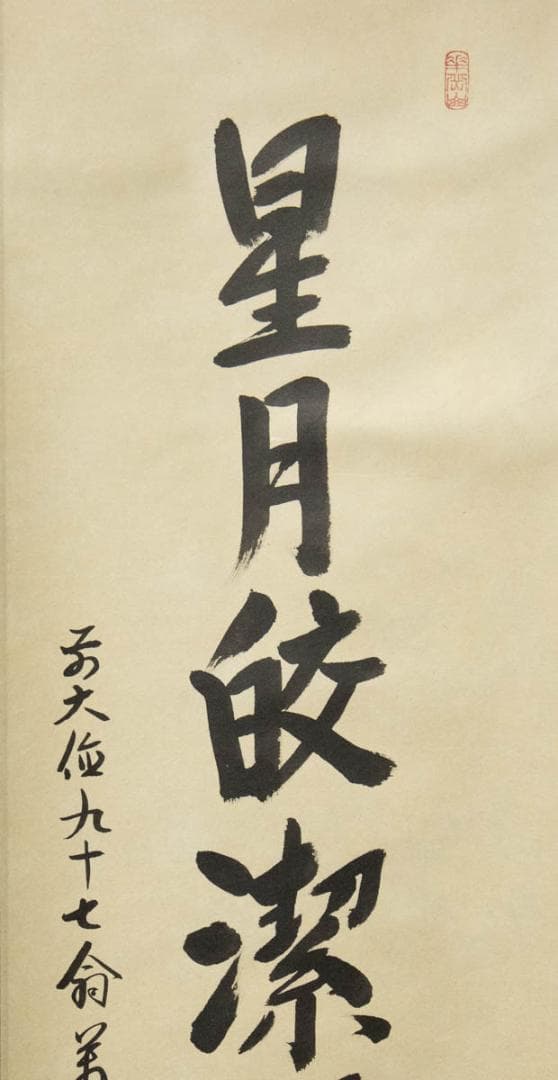 星月皎潔
前大徳九十七翁